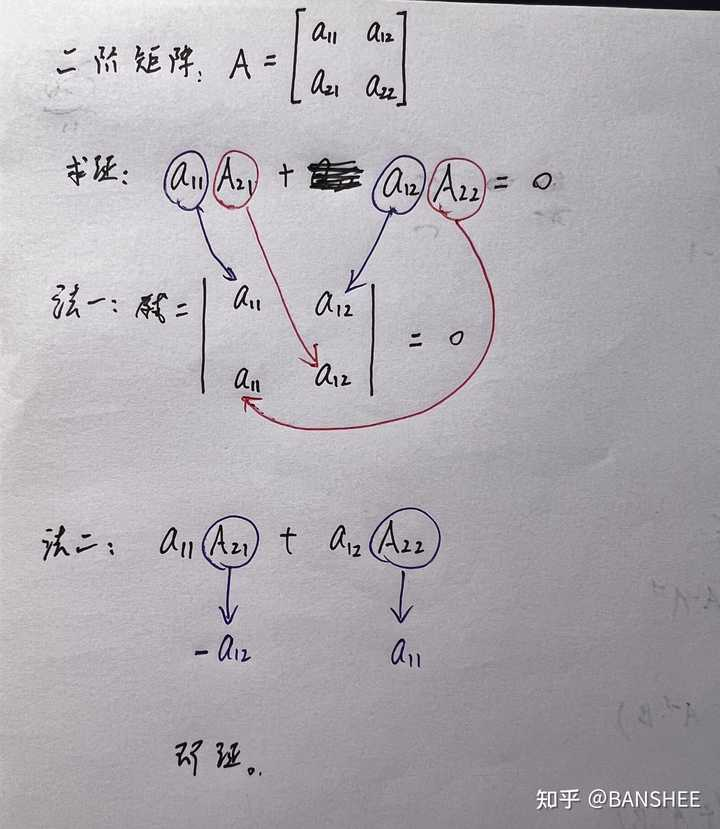 二阶矩阵: A = [ a₁₁ a₁₂
a₂₁ a₂₂ ]
求证: a₁₁ A₂₁ + a₁₂ A₂₂ = 0
法一: 原式 = | a₁₁ a₁₂ | = 0
a₁₁ a₁₂
法二: a₁₁ A₂₁ + a₁₂ A₂₂
-a₁₂ a₁₁
即证。
知乎 @BANSHEE